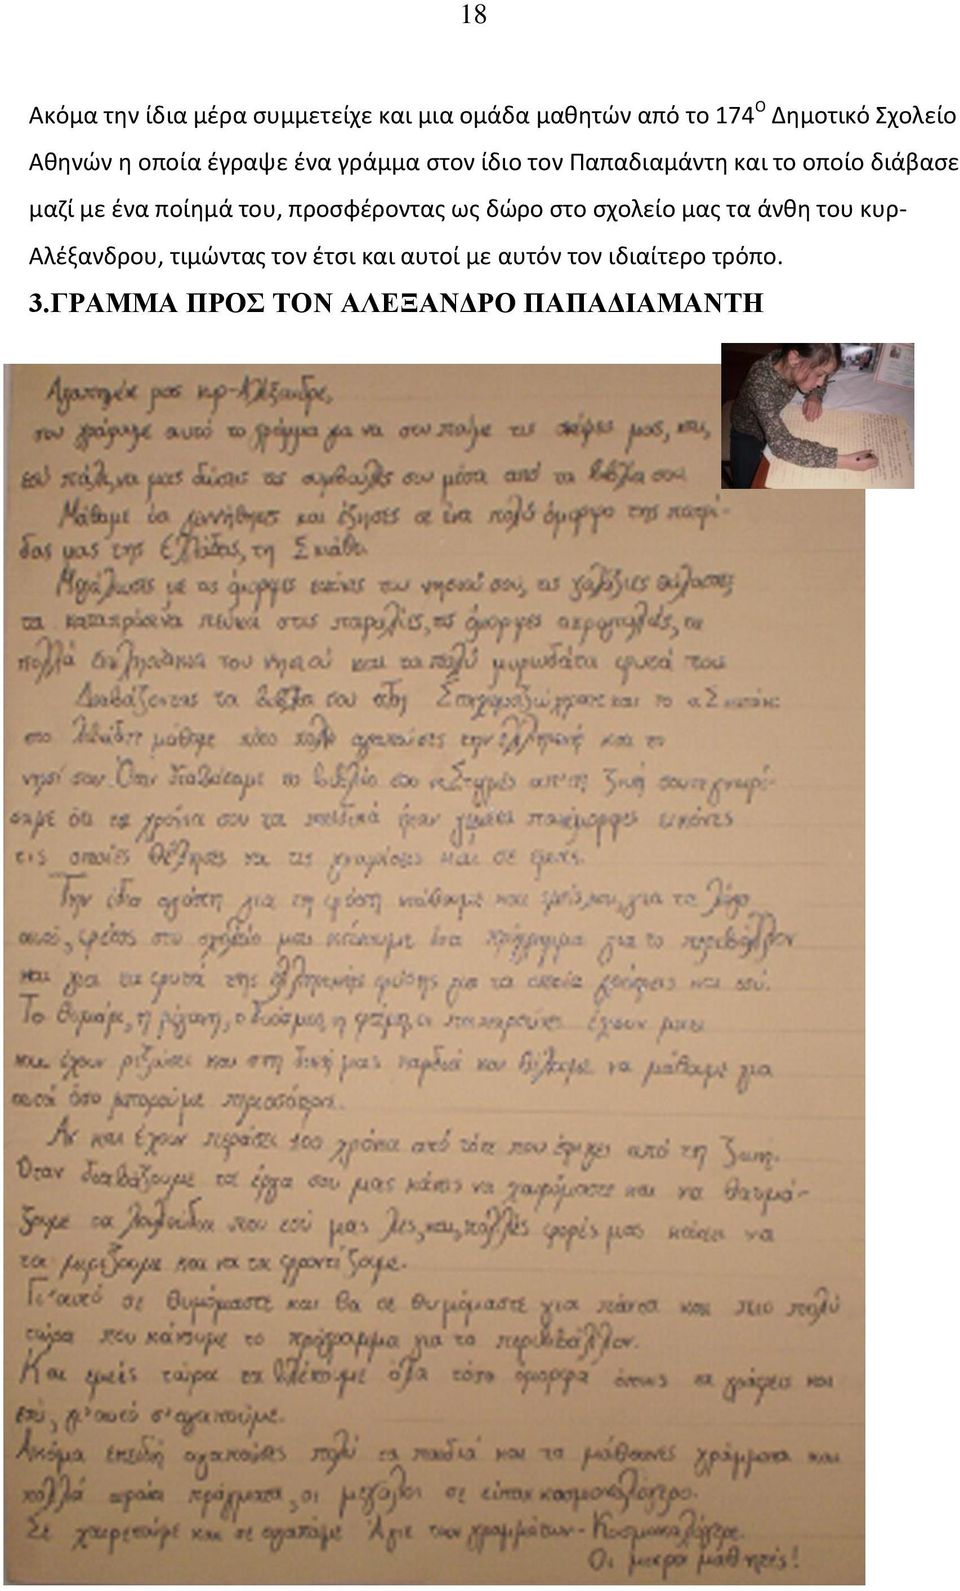 18
Ακόμα την ίδια μέρα συμμετείχε και μια ομάδα μαθητών από το 174Ο Δημοτικό Σχολείο
Αθηνών η οποία έγραψε ένα γράμμα στον ίδιο τον Παπαδιαμάντη και το οποίο διάβασε
μαζί με ένα ποίημά του, προσφέροντας ως δώρο στο σχολείο μας τα άνθη του κυρ-
Αλέξανδρου, τιμώντας τον έτσι και αυτοί με αυτόν τον ιδιαίτερο τρόπο.
3.ΓΡΑΜΜΑ ΠΡΟΣ ΤΟΝ ΑΛΕΞΑΝΔΡΟ ΠΑΠΑΔΙΑΜΑΝΤΗ
Αγαπημένε μας κυρ-Αλέξανδρε,
σου γράφουμε αυτό το γράμμα για να σου πούμε τις σκέψεις μας, και,
εσύ πάλι, να μας δώσεις τις συμβουλές σου μέσα από τα βιβλία σου.
Μάθαμε ότι γεννήθηκες και έζησες σε ένα πολύ όμορφο της πατρί-
δας μας της Ελλάδας, τη Σκιάθο.
Μεγάλωσες με τις όμορφες εικόνες του νησιού σου, τις γαλάζιες θάλασσες
τα καταπράσινα πεύκα στις παραλίες, τις όμορφες ακρογιαλιές, τα
πολλά του νησιού και τα πολύ μυρωδάτα φυτά του.
Διαβάζοντας τα βιβλία σου και το
μάθαμε πόσο πολύ αγαπούσες την και το
νησί σου. Όταν διαβάσαμε το βιβλίο σου ζωή
σαμε ότι τα χρόνια σου τα παιδικά ήταν γεμάτα πανέμορφες εικόνες
τις οποίες θέλησες να τις γνωρίσεις και σε εμάς.
Την ίδια αγάπη για τη φύση νιώθουμε και εμείς και, για το λόγο
αυτό, φέτος στο σχολείο μας κάνουμε ένα πρόγραμμα για το περιβάλλον
και για τα φυτά της ελληνικής φύσης για τα οποία γράφεις και εσύ.
Το θυμάρι, η ρίγανη, ο δυόσμος, η έχουν
και έχουν ριζώσει και στη δική μας καρδιά και θέλουμε να μάθουμε για
αυτά όσο μπορούμε περισσότερα.
Αν και έχουν περάσει 100 χρόνια από τότε που έφυγες από τη ζωή.
Όταν διαβάζουμε τα έργα σου μας κάνεις να χαιρόμαστε και να θαυμά-
ζουμε τα λουλούδια που εσύ μας λες, και, πολλές φορές μας κάνεις να
τα μυρίζουμε και να τα φροντίζουμε.
Γι' αυτό σε θυμόμαστε και θα σε θυμόμαστε για πάντα και πιο πολύ
τώρα που κάνουμε το πρόγραμμα για το περιβάλλον.
Και εμείς τώρα τα βλέπουμε όλα τόσο όμορφα όπως τα γράφεις και
εσύ, γι' αυτό σ' αγαπούμε.
Ακόμα επειδή αγαπούσες πολύ τα παιδιά και τα μάθαινες γράμματα και
πολλά ωραία πράγματα, οι μεγάλοι σε είπαν κοσμοκαλόγερο.
Σε χαιρετούμε και σε αγαπάμε Άγιε των γραμμάτων - Κοσμοκαλόγερε.
Οι μικροί μαθητές!